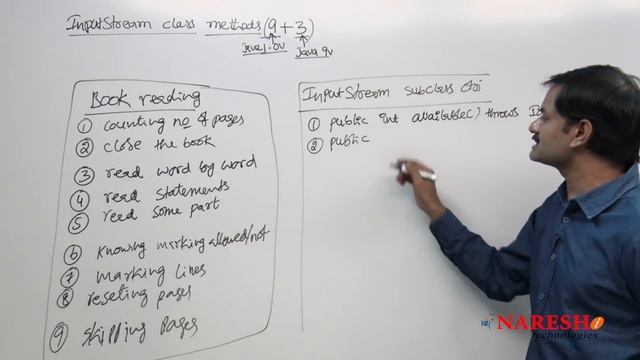 InputStream class methods (9+3)
java 1.0v java 9v
Book reading
① counting no of pages
② close the book
③ read word by word
④ read statements
⑤ reed some part
⑥ knowing marking allowed/not
⑦ marking lines
⑧ reseting pages
⑨ skipping pages
InputStream subclass
① public int available() throws I
② public
NARESH i
Technologies